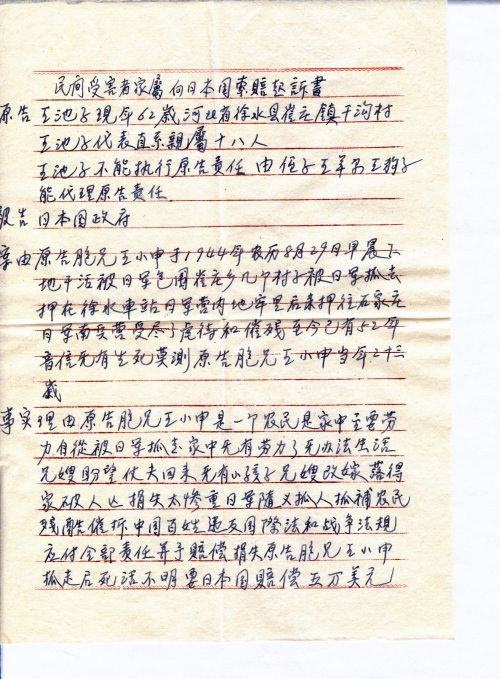 民间受害者家屬向日本国索賠起訴書
原告 王池子現年62歲河北省徐水县崔庄鎮干沟村
王池子代表直系親屬十八人
王池子不能执行原告責任 由侄子王羊圈王狗子
能代理原告責任
被告 日本国政府
事由 原告胞兄王小申于1944年农历8月29日早晨下
地干活被日军包围崔庄乡几个村子被日军抓去
押在徐水車站日军营内地牢里后来押往石家庄
日军南兵营受尽了虐待和催残至今已有52年
音信无有生死莫測原告胞兄王小申当年二十三
歲
事实理由 原告胞兄王小申是一个农民是家中主要劳
力自從被日军抓去家中无有劳力了无办法生活
兄嫂盼望仗夫回来无有小孩子兄嫂改嫁落得
家破人亡損失太慘重日军隨义抓人抓補农民
残酷催折中国百姓违反国際法和战争法規
应付全部責任并于賠偿損失原告胞兄王小申
抓走后死活不明要日本国賠偿五万美元